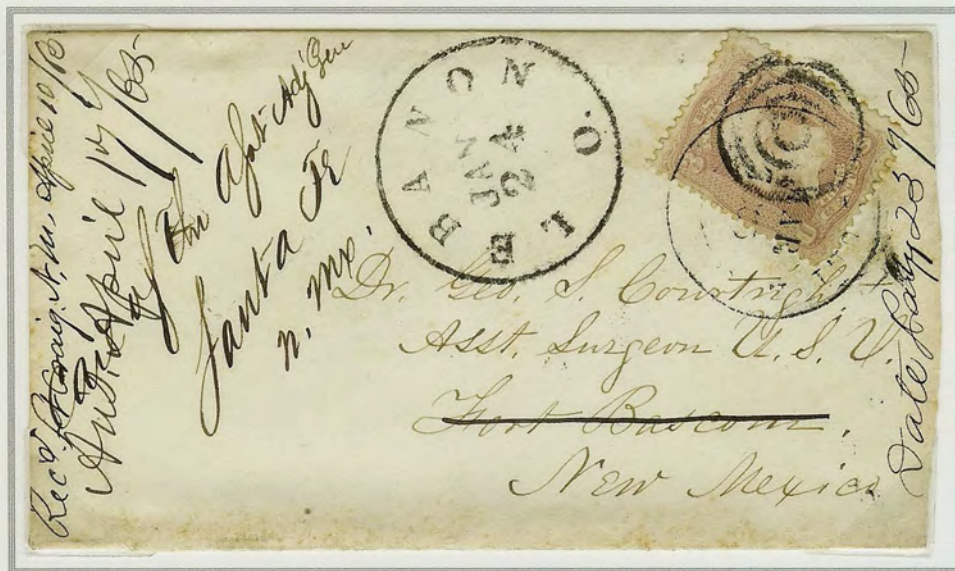 Rec'd Ft Craig N. M. April 10/65
Ans'd April 17/65
Asst Adj Gen
Santa Fe
N. Mx.
LEBANON O.
JAN
24
Dr. Geo. S. Courtright
Asst. Surgeon U. S. V.
Fort Bascom,
New Mexico
Date 23/65